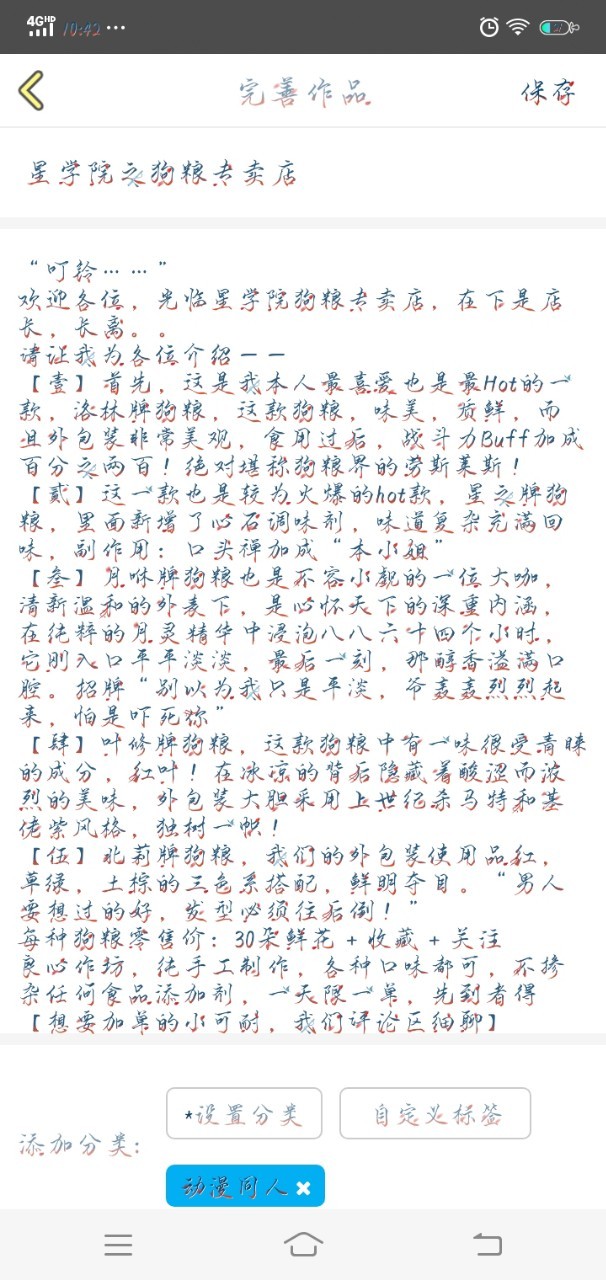 4G HD 10:42 ...
完善作品
保存
星学院之狗粮专卖店
“叮铃……”
欢迎各位，光临星学院狗粮专卖店，在下是店
长，长离。。
请让我为各位介绍——
【壹】首先，这是我本人最喜爱也是最Hot的一
款，洛林牌狗粮，这款狗粮，味美，质鲜，而
且外包装非常美观，食用过后，战斗力Buff加成
百分之两百！绝对堪称狗粮界的劳斯莱斯！
【贰】这一款也是较为火爆的hot款，星之牌狗
粮，里面新增了心石调味剂，味道复杂充满回
味，副作用：口头禅加成“本小姐”
【叁】月咻牌狗粮也是不容小觑的一位大咖，
清新温和的外表下，是心怀天下的深重内涵，
在纯粹的月灵精华中浸泡八八六十四个小时，
它刚入口平平淡淡，最后一刻，那醇香溢满口
腔。招牌“别以为我只是平淡，爷轰轰烈烈起
来，怕是吓死你”
【肆】叶修牌狗粮，这款狗粮中有一味很受青睐
的成分，红叶！在冰凉的背后隐藏着酸涩而浓
烈的美味，外包装大胆采用上世纪杀马特和基
佬紫风格，独树一帜！
【伍】北莉牌狗粮，我们的外包装使用品红，
草绿，土棕的三色系搭配，鲜明夺目。“男人
要想过的好，发型必须往后倒！”
每种狗粮零售价：30朵鲜花+收藏+关注
良心作坊，纯手工制作，各种口味都可，不掺
杂任何食品添加剂，一天限一单，先到者得
【想要加单的小可耐，我们评论区细聊】
添加分类:
*设置分类
自定义标签
动漫同人 ×